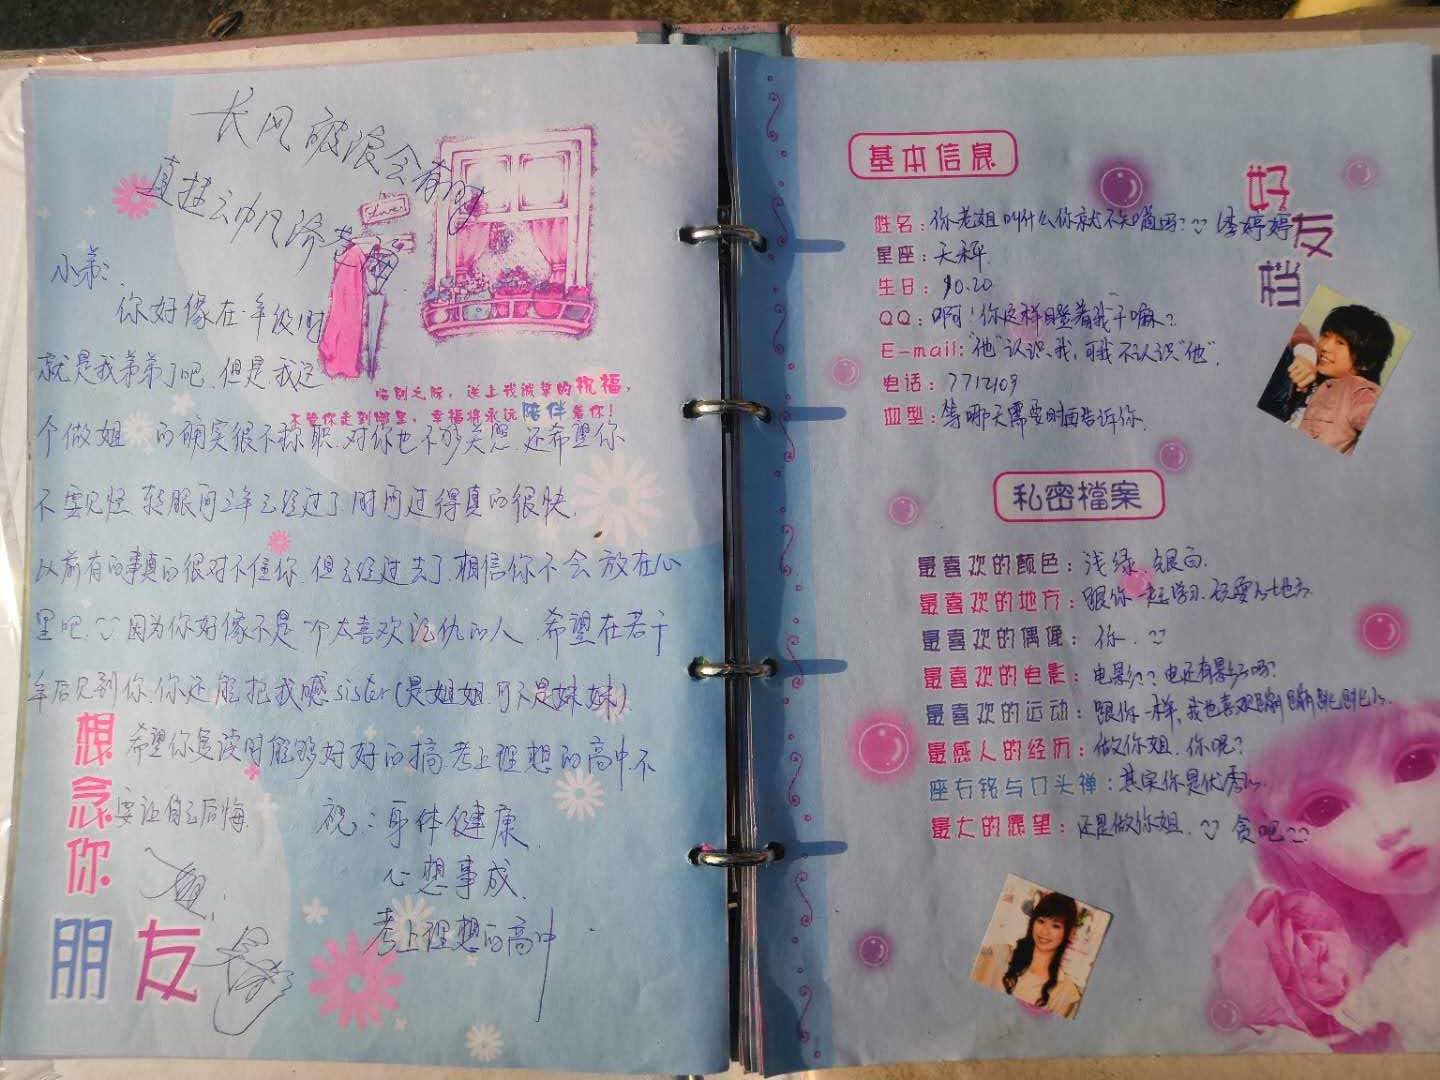 长风破浪会有时
直挂云帆济苍海
Love
小弟：
你好像在一年级时
就是我弟弟了吧，但是，我这
临别之际，送上我诚挚的祝福，
不管你走到哪里，幸福将永远陪伴着你！
个做姐的确实很不称职，对你也不够关心，还希望你
不要见怪，转眼间三年已经过了，时间过得真的很快，
以前有的事真的很对不住你，但已经过去了，相信你不会放在心
里吧，因为你好像不是一个太喜欢记仇的人，希望在若干
年后见到你，你还能把我喊sister（是姐姐，可不是妹妹）
希望你复读时能够好好的搞，考上理想的高中，不
要让自己后悔
祝：身体健康，
心想事成，
考上理想的高中
姐，
想念你
朋友
基本信息
好友档
姓名：你老姐叫什么你就不知道吗？李婷婷
星座：天秤
生日：10.20
QQ：啊！你这样瞪着我干嘛？
E-mail："他"认识我，可我不认识"他"。
电话：7712109
血型：等哪天需要时再告诉你
私密檔案
最喜欢的颜色：浅绿，银白
最喜欢的地方：跟你一起学习、玩耍的地方
最喜欢的偶像：你
最喜欢的电影：电影？？电还有影子吗？
最喜欢的运动：跟你一样，我也喜欢蹦蹦跳跳
最感人的经历：做你姐，你呢？
座右铭与口头禅：其实你是优秀的
最大的愿望：还是做你姐，贪吧